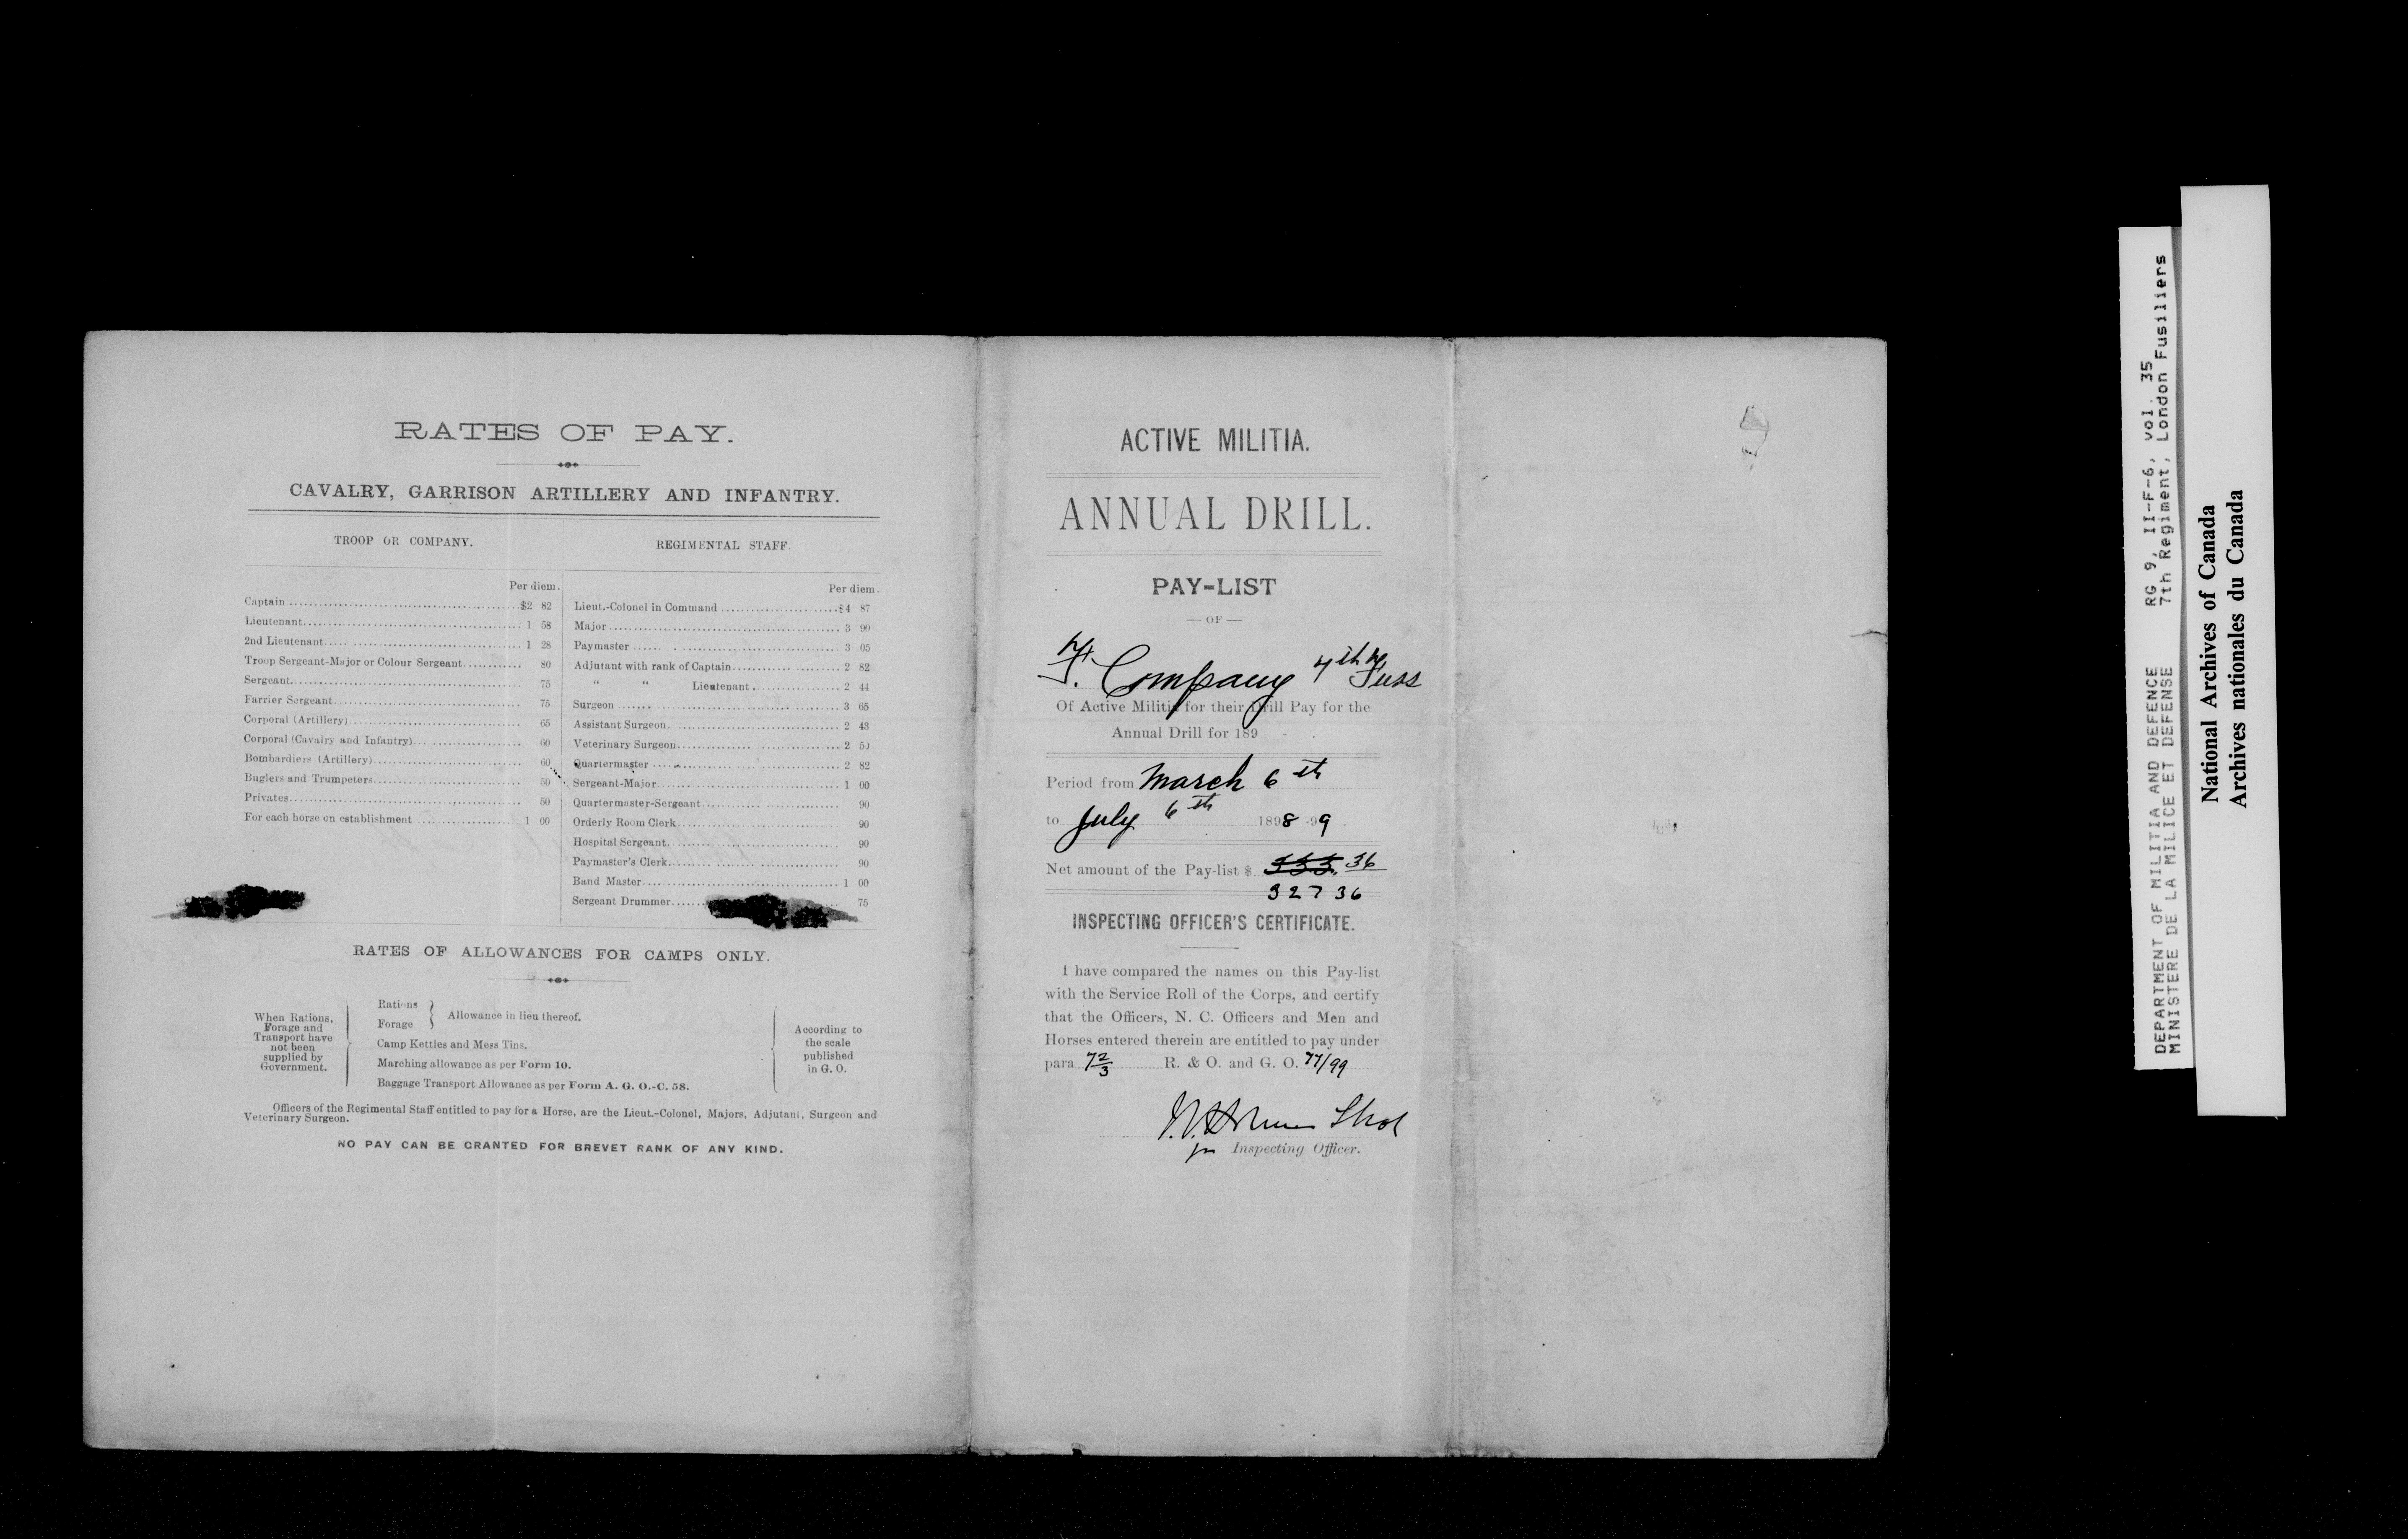 RATES OF PAY.
CAVALRY, GARRISON ARTILLERY AND INFANTRY.
TROOP OR COMPANY.
Per diem.
Captain $2 82
Lieutenant 1 58
2nd Lieutenant 1 28
Troop Sergeant-Major or Colour Sergeant 80
Sergeant 75
Farrier Sergeant 75
Corporal (Artillery) 65
Corporal (Cavalry and Infantry) 60
Bombardiers (Artillery) 60
Buglers and Trumpeters 50
Privates 50
For each horse on establishment 1 00
REGIMENTAL STAFF
Per diem.
Lieut.-Colonel in Command $4 87
Major 3 90
Paymaster 3 05
Adjutant with rank of Captain 2 82
" " Lieutenant 2 44
Surgeon 3 65
Assistant Surgeon 2 43
Veterinary Surgeon 2 50
Quartermaster 2 82
Sergeant-Major 1 00
Quartermaster-Sergeant 90
Orderly Room Clerk 90
Hospital Sergeant 90
Paymaster's Clerk 90
Band Master 1 00
Sergeant Drummer 75
RATES OF ALLOWANCES FOR CAMPS ONLY.
When Rations,
Forage and
Transport have
not been
supplied by
Government.
Rations
Forage
Allowance in lieu thereof.
Camp Kettles and Mess Tins.
Marching allowance as per Form 10.
Baggage Transport Allowance as per Form A. G. O.-C. 58.
According to
the scale
published
in G. O.
Officers of the Regimental Staff entitled to pay for a Horse, are the Lieut.-Colonel, Majors, Adjutant, Surgeon and
Veterinary Surgeon.
NO PAY CAN BE GRANTED FOR BREVET RANK OF ANY KIND.
ACTIVE MILITIA.
ANNUAL DRILL.
PAY-LIST
— OF —
F. Company 7th Fuss
Of Active Militia for their Drill Pay for the
Annual Drill for 189
Period from March 6th
to July 6th 1898-99
Net amount of the Pay-list $ 333.36
327 36
INSPECTING OFFICER'S CERTIFICATE.
I have compared the names on this Pay-list
with the Service Roll of the Corps, and certify
that the Officers, N. C. Officers and Men and
Horses entered therein are entitled to pay under
para 72/3 R. & O. and G. O. 77/99
for Inspecting Officer.
DEPARTMENT OF MILITIA AND DEFENCE RG 9, II-F-6, vol. 35
MINISTERE DE LA MILICE ET DEFENSE 7th Regiment, London Fusiliers
National Archives of Canada
Archives nationales du Canada